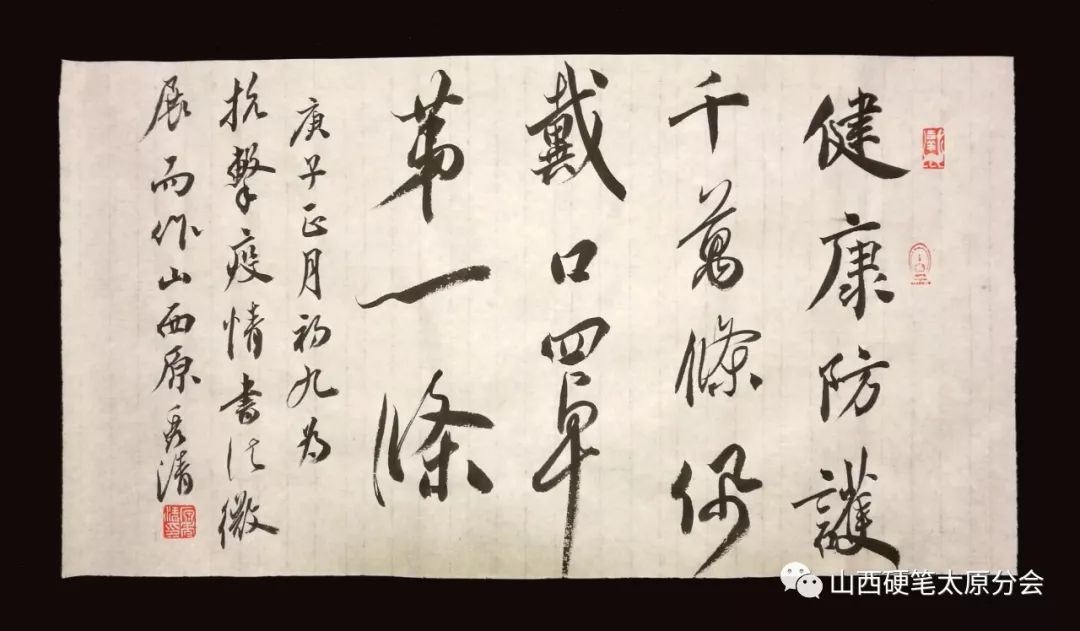 健康防護
千萬條佩
戴口罩
第一條
庚子正月初九為
抗擊疫情書法微
展而作山西原秀清
山西硬笔太原分会